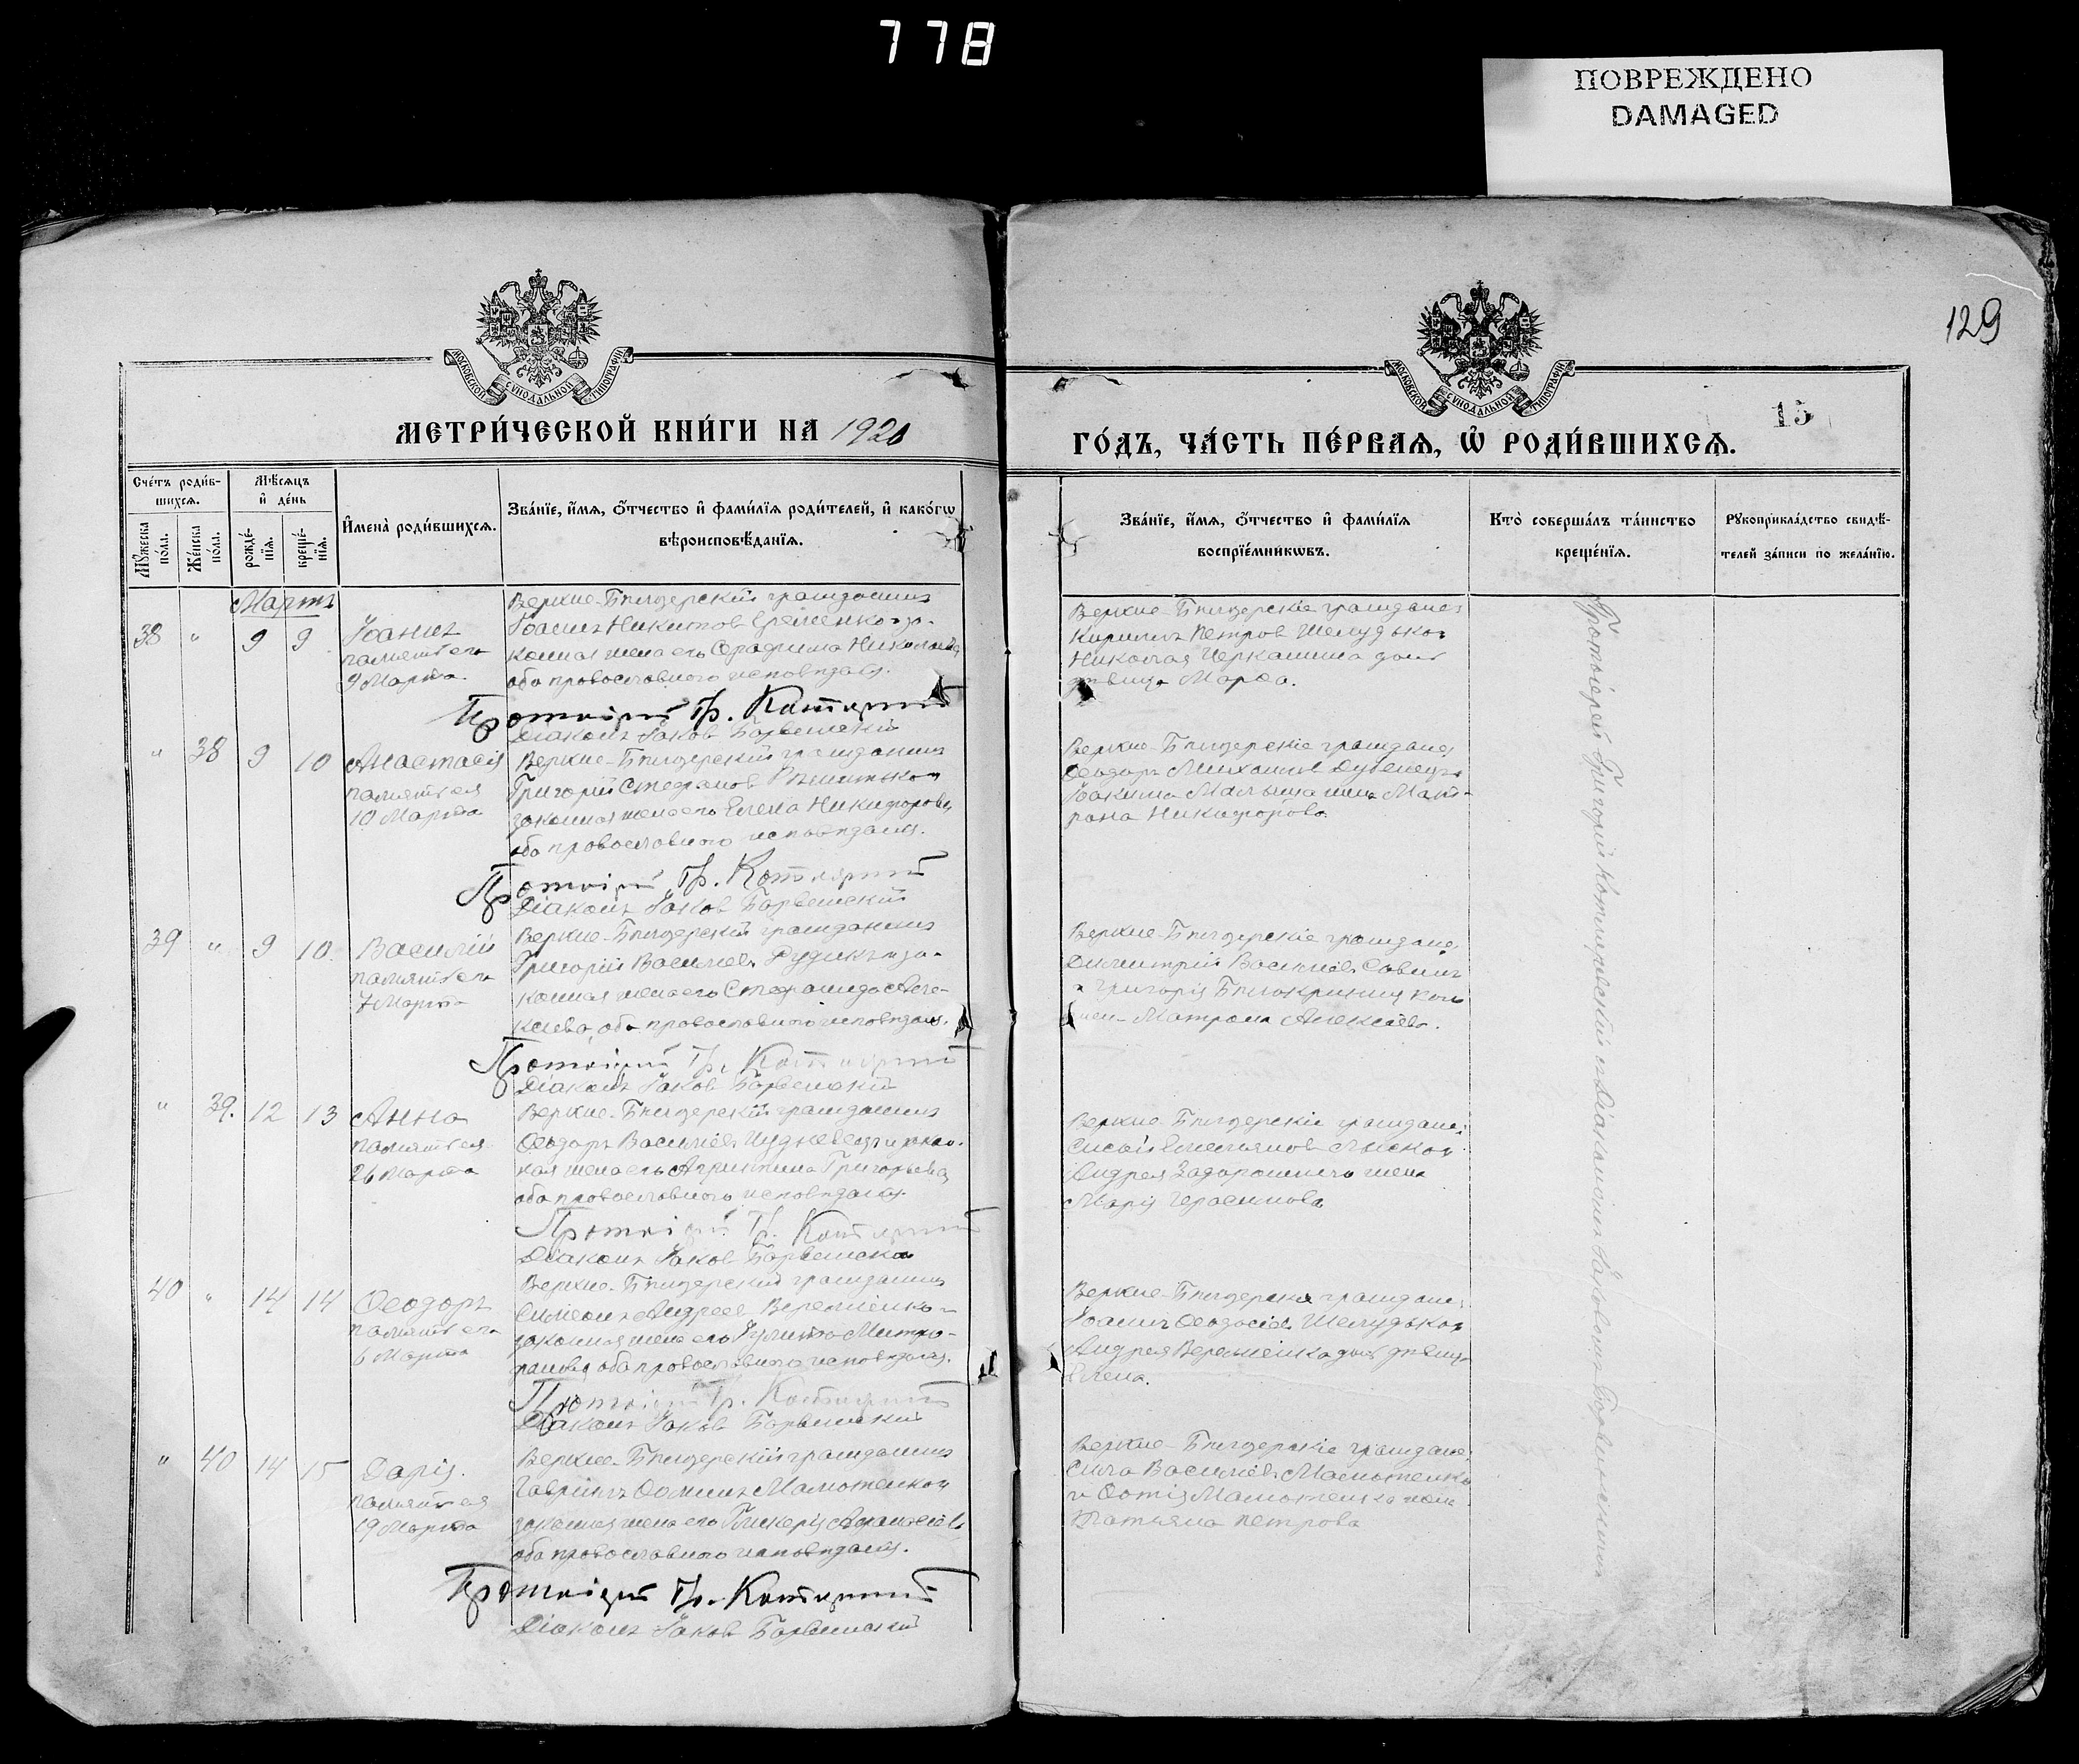 778
ПОВРЕЖДЕНО
DAMAGED
129
МОСКОВСКОЙ СѴНОДАЛЬНОЙ ТИПОГРАФІИ
МОСКОВСКОЙ СѴНОДАЛЬНОЙ ТИПОГРАФІИ
МЕТРИ́ЧЕСКОЙ КНИ́ГИ НА 1920
ГО́ДЪ, ЧА́СТЬ ПЕ́РВАѦ, Ѡ҆ РОДИ́ВШИХСѦ.
15
Сче́тъ роди́в-
шихсѧ.
Мꙋ́жеска по́ла.
Же́нска по́ла.
Мѣ́сѧцъ
и҆ де́нь
рожде́-
нїѧ.
креще́-
нїѧ.
И҆мена̀ роди́вшихсѧ.
Зва́нїе, и҆́мѧ, ѻ҆́тчество и҆ фами́лїѧ роди́телей, и҆ како́гѡ
вѣроисповѣ́данїѧ.
Зва́нїе, и҆́мѧ, ѻ҆́тчество и҆ фами́лїѧ
воспрїе́мникѡвъ.
Кто̀ соверша́лъ та́инство
креще́нїѧ.
Рꙋкоприкла́дство свидѣ́-
телей за́писи по жела́нїю.
Мартъ
38 " 9 9
Іоаннъ
память его
9 Марта
Верхне-Бѣлозерскій гражданинъ
Іоаннъ Никитовъ Еременко и за-
конная жена его Серафима Николаева,
оба православнаго исповѣданія.
Протоіерей Гр. Котляревскій
Діаконъ Іаковъ Барвинскій
Верхне-Бѣлозерскіе граждане:
Кириллъ Петровъ Шелудько и
Николая Черкашина дочь
дѣвица Марѳа.
" 38 9 10
Анастасія
память ея
10 Марта
Верхне-Бѣлозерскій гражданинъ
Григорій Стефановъ
законная жена его Елена Никифорова,
оба православнаго исповѣданія.
Протоіерей Гр. Котляревскій
Діаконъ Іаковъ Барвинскій
Верхне-Бѣлозерскіе граждане:
Ѳеодоръ Михаиловъ Дубенецъ и
Іоакима Малыша жена Мат-
рона Никифорова.
39 " 9 10
Василій
память его
7 Марта
Верхне-Бѣлозерскій гражданинъ
Григорій Васильевъ Рудикъ и за-
конная жена его Стефанида Алек-
сіева, оба православнаго исповѣданія.
Протоіерей Гр. Котляревскій
Діаконъ Іаковъ Барвинскій
Верхне-Бѣлозерскіе граждане:
Димитрій Васильевъ Савинъ
и Григорія
Матрона Алексіева.
" 39. 12 13
Анна
память ея
26 Марта
Верхне-Бѣлозерскій гражданинъ
Ѳеодоръ Васильевъ и закон-
ная жена его Агриппина Григорьева,
оба православнаго исповѣданія.
Протоіерей Гр. Котляревскій
Діаконъ Іаковъ Барвинскій
Верхне-Бѣлозерскіе граждане:
Емельяновъ Лыско и
Андрея Задорожнаго жена
Марія Герасимова
40 " 14 14
Ѳеодоръ
память его
6 Марта
Верхне-Бѣлозерскій гражданинъ
Симеонъ Андреевъ Веремѣенко и
законная жена его Іулитта Митро-
фанова, оба православнаго исповѣданія.
Протоіерей Гр. Котляревскій
Діаконъ Іаковъ Барвинскій
Верхне-Бѣлозерскіе граждане:
Іоаннъ Ѳеодосіевъ Шелудько и
Андрея Веремѣенка дочь дѣвица
Елена.
" 40 14 15
Дарія.
память ея
19 Марта
Верхне-Бѣлозерскій гражданинъ
Гавріилъ Ѳоминъ Мамотенко и
законная жена его Гликерія Аѳанасіева
оба православнаго исповѣданія.
Протоіерей Гр. Котляревскій
Діаконъ Іаковъ Барвинскій
Верхне-Бѣлозерскіе граждане:
Сила Васильевъ Мамотенко
и Ѳотія Мамотенко жена
Татьяна Петрова
Протоіерей Григорій Котляревскій съ Діакономъ Іаковомъ Барвинскимъ